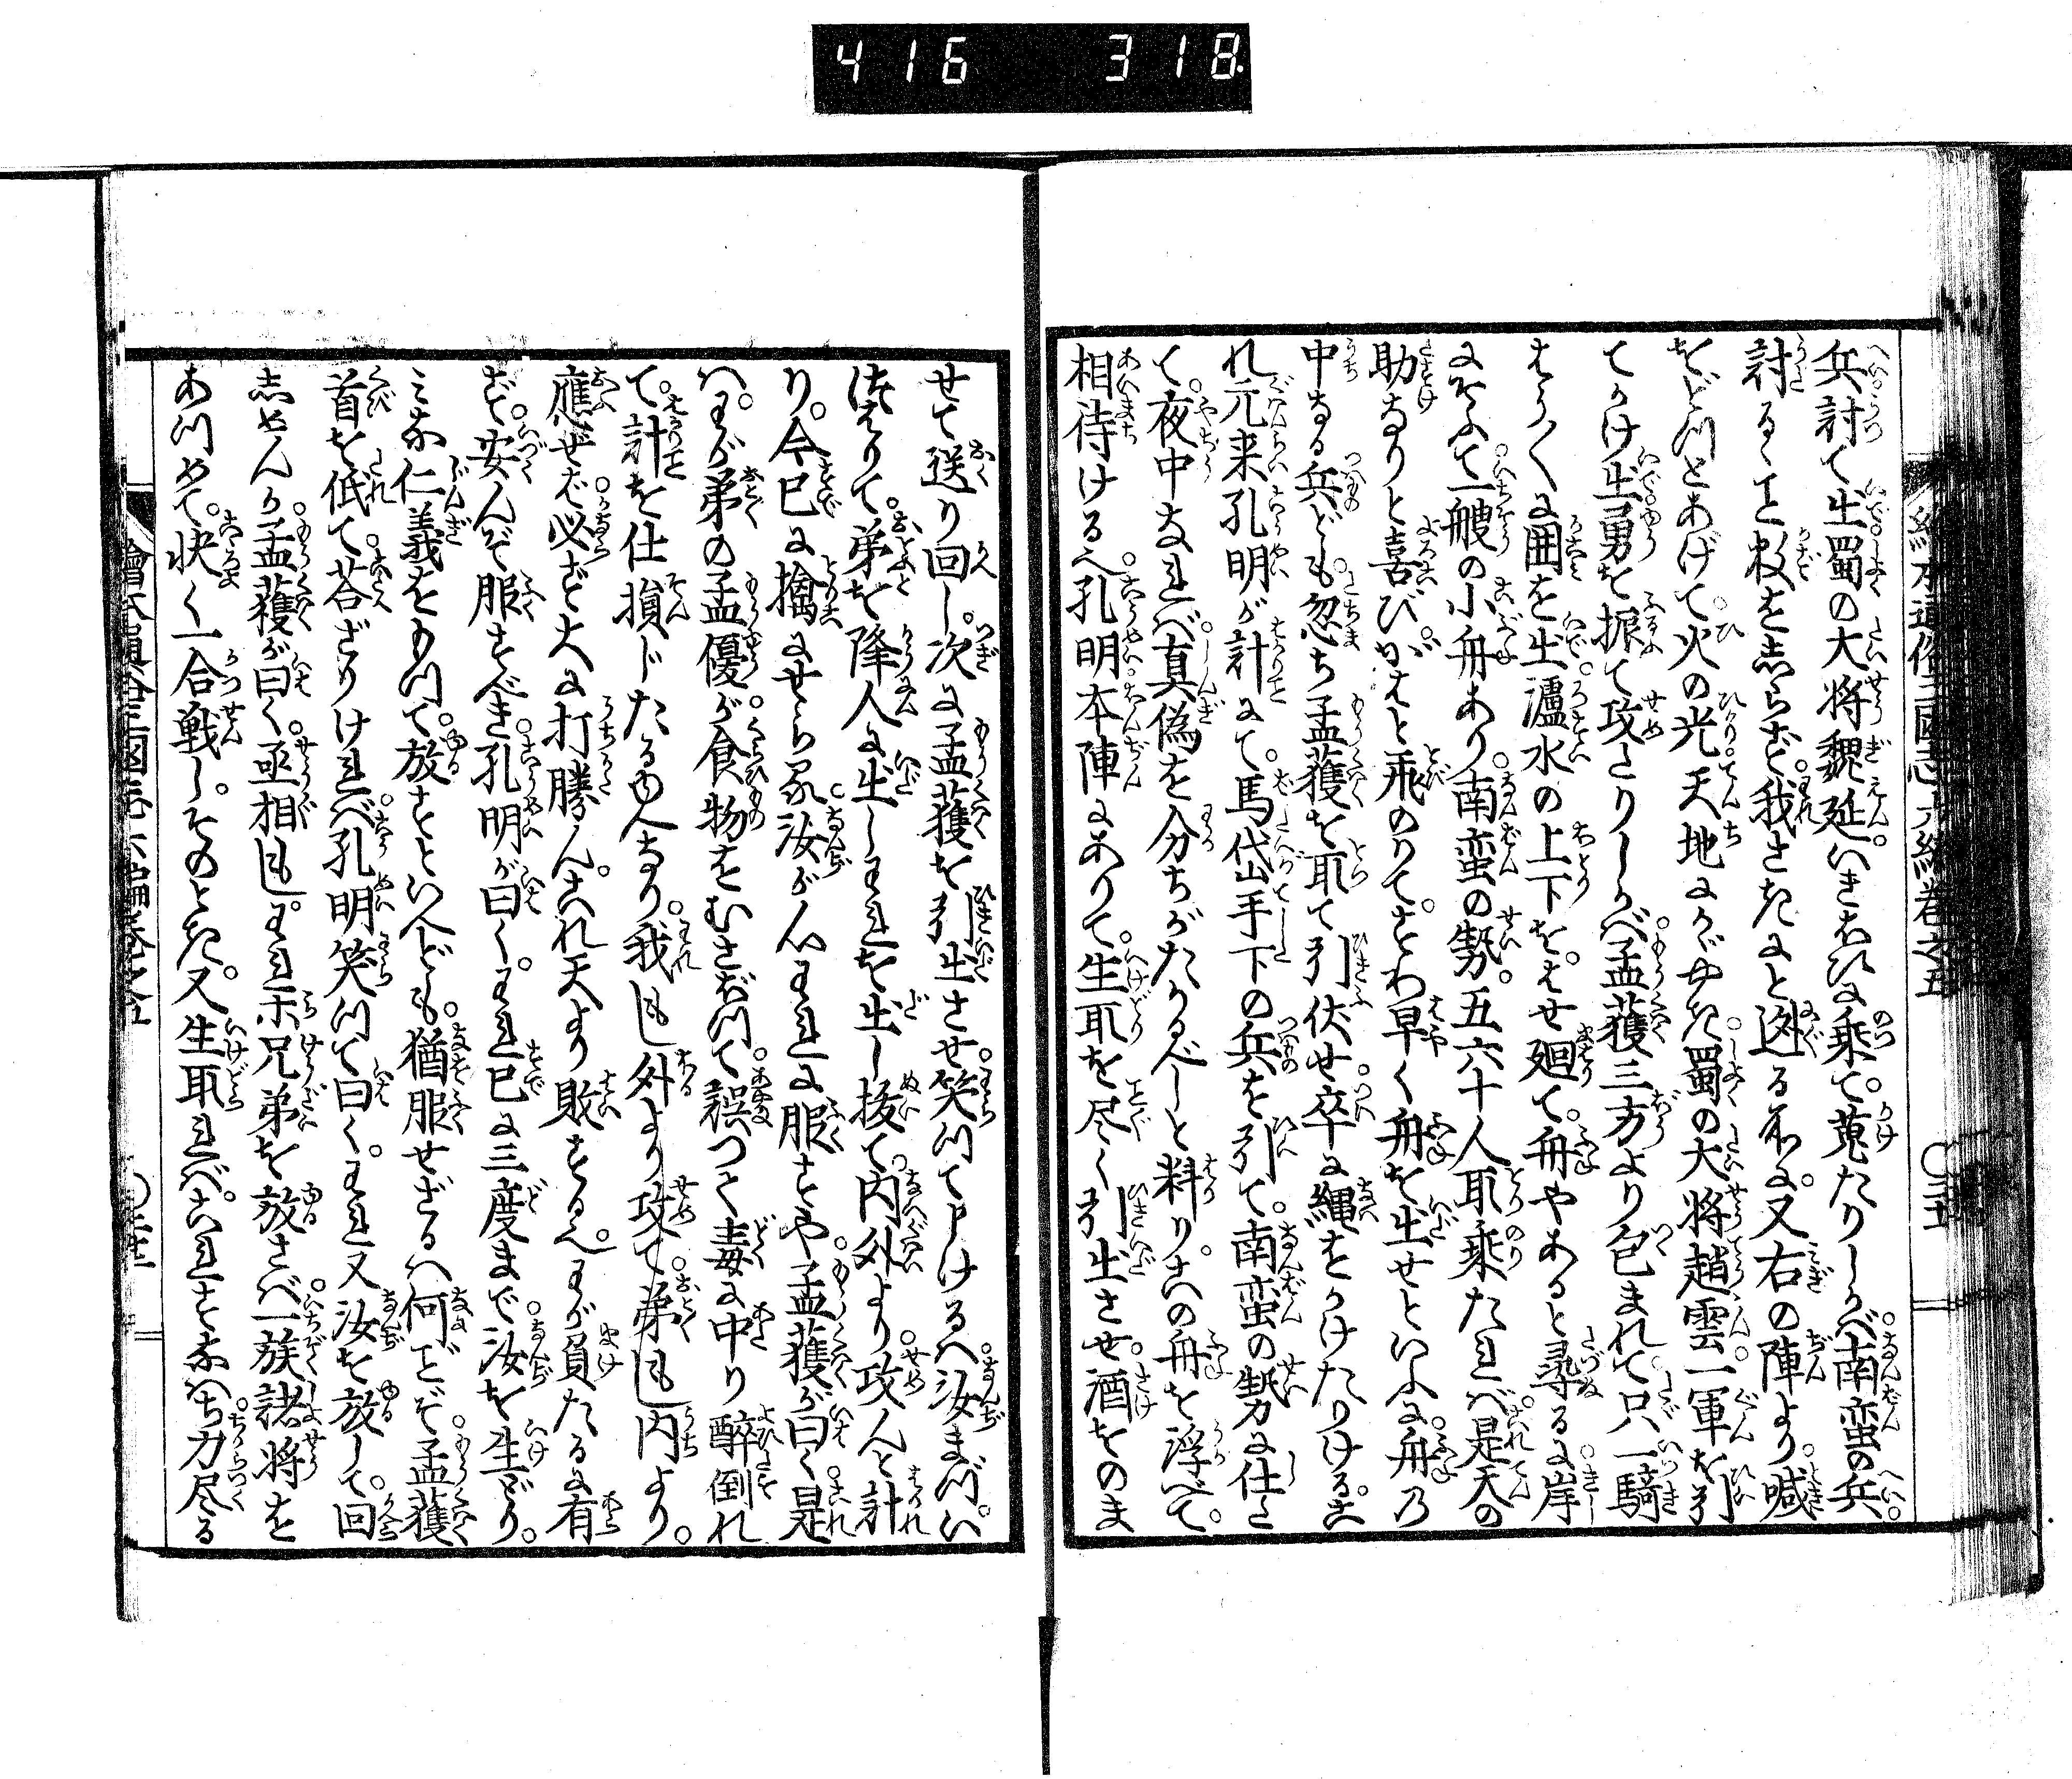 416 318
繪本通俗三國志六編卷之五
兵討て出蜀の大将魏延いきおひに乗て蒐たりしかべ南蛮の兵
討るゝ𪜈数を志らず我さきにと迯る所に又右の陣より喊
をどつとあげて火の光天地にかゞやき蜀の大将趙雲一軍を引
てかけ出勇を振て攻たりしかべ孟獲三方より包まれて只一騎
やう〳〵に囲を出瀘水の上下をはせ廻て舟やあると尋るに岸
にそふて一艘の小舟あり南蛮の勢五六十人取乗たれべ是天の
助なりと喜びがはと飛のりてとわ早く舟を出せといふに舟乃
中なる兵ども忽ち孟獲を取て引伏せ卒に縄をかけたりけるこ
れ元来孔明が計にて馬岱手下の兵を引て南蛮の勢に仕立
て夜中なれべ真偽を分ちがたかるべしと料りこの舟を浮べて
相待けるへ孔明本陣にありて生取を尽く引出させ酒をのま
せて送り回し次に孟獲を引出させ笑川て申けるハ汝まづい
つはりて弟を降人に出しわれを出し抜て内外より攻んと計
り今已に擒にせらる汝が心われに服すや孟獲が曰く是
ハわが弟の孟優が食物をむさぼ川て誤つて毒に中り酔倒れ
て計を仕損じたるゆへなり我もし外より攻て弟もし内より
應ぜば必ず大に打勝んこれ天より敗するへわが負たるに有
ず安んぞ服すべき孔明が曰くわれ已に三度まで汝を生どり
みな仁義をも川て放すといへども猶服せざるハ何𪜈ぞ孟獲
首を低て荅ざりけれべ孔明笑川て曰くわれ又汝を放して回
志めんか孟獲が曰く丞相もしわれら兄弟を放さべ一族諸将を
あ川めて快く一合戦しそのとき又生取れべこれすなハち力尽る